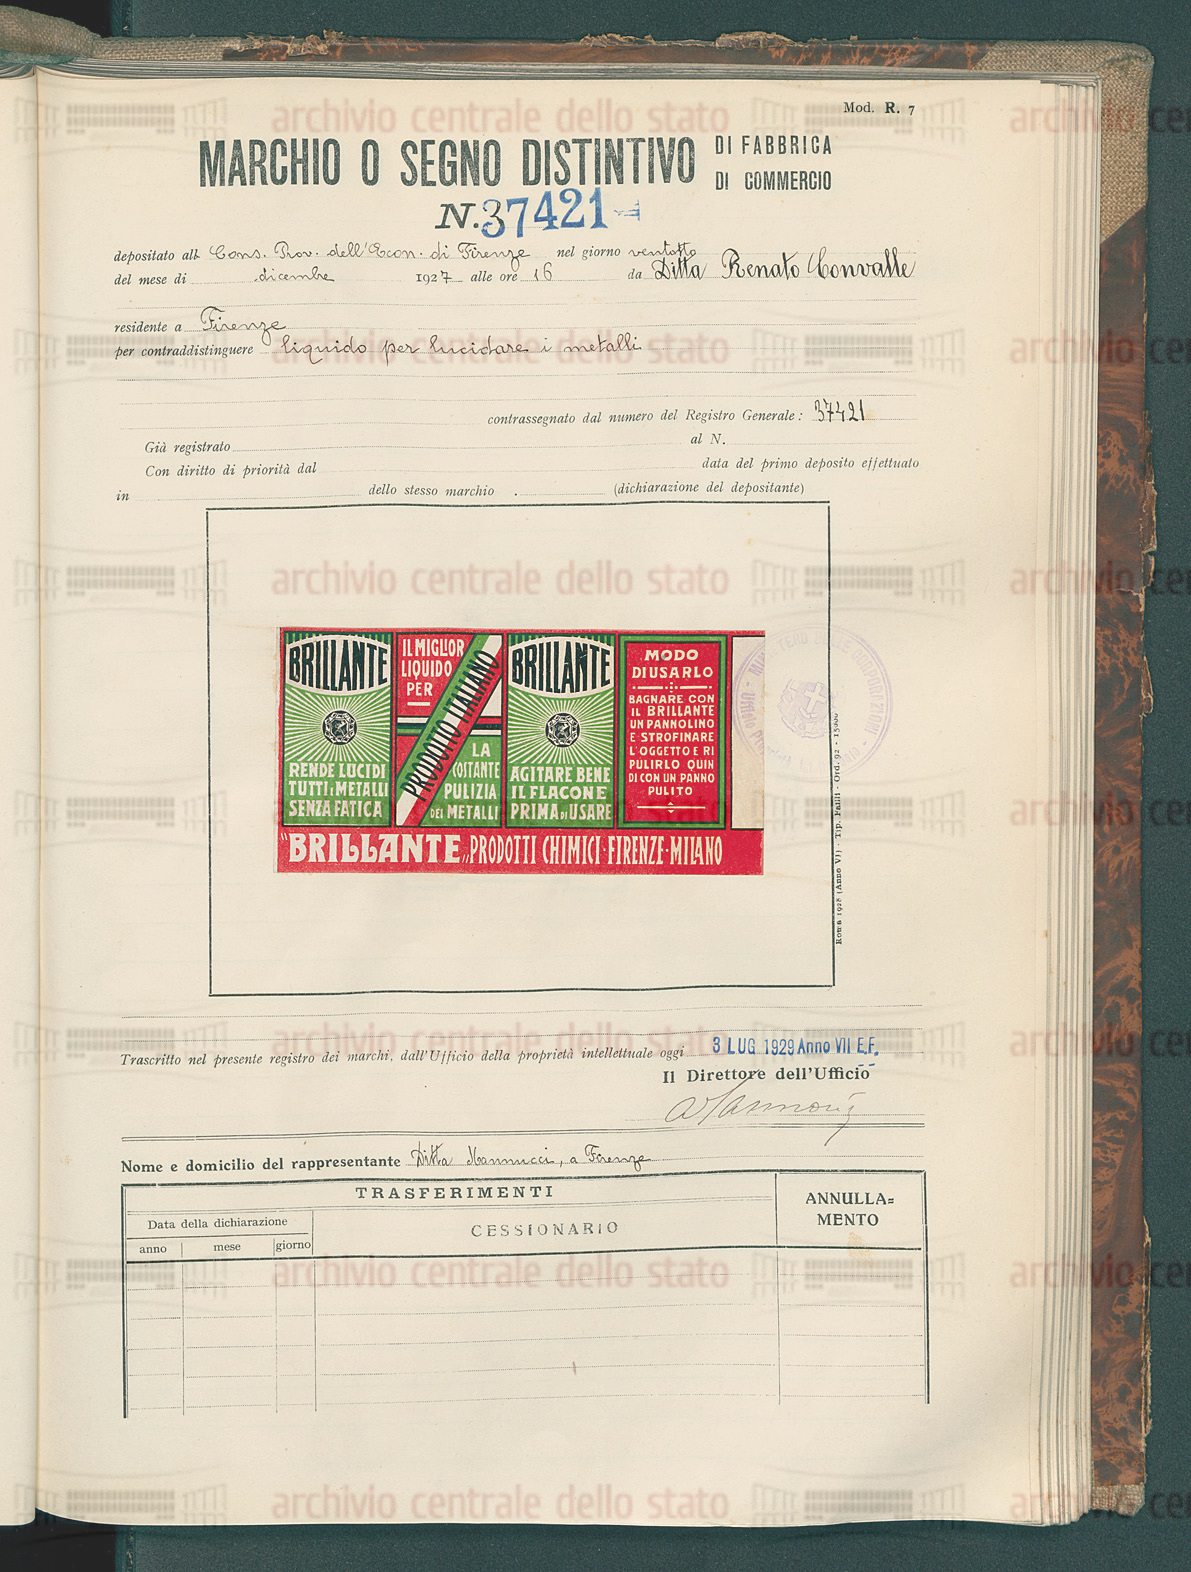 Mod. R. 7
MARCHIO O SEGNO DISTINTIVO DI FABBRICA
DI COMMERCIO
N. 37421
depositato all Cons. Prov. dell'Econ. di Firenze nel giorno ventotto
del mese di dicembre 1927 alle ore 16 da Ditta Renato Convalle
residente a Firenze
per contraddistinguere liquido per lucidare i metalli
contrassegnato dal numero del Registro Generale: 37421
Già registrato al N.
Con diritto di priorità dal data del primo deposito effettuato
in dello stesso marchio . (dichiarazione del depositante)
BRILLANTE
RENDE LUCIDI
TUTTI I METALLI
SENZA FATICA
IL MIGLIOR
LIQUIDO
PER
PRODOTTO ITALIANO
LA
COSTANTE
PULIZIA
DEI METALLI
BRILLANTE
AGITARE BENE
IL FLACONE
PRIMA DI USARE
MODO
DI USARLO
BAGNARE CON
IL BRILLANTE
UN PANNOLINO
E STROFINARE
L'OGGETTO E RI
PULIRLO QUIN
DI CON UN PANNO
PULITO
"BRILLANTE„ PRODOTTI CHIMICI·FIRENZE·MILANO
MINISTERO DELLE CORPORAZIONI
Roma 1928 (Anno VI) - Tip. Failli - Ord. 92 - 15000
Trascritto nel presente registro dei marchi, dall'Ufficio della proprietà intellettuale oggi 3 LUG 1929 Anno VII E.F.
Il Direttore dell'Ufficio
Nome e domicilio del rappresentante Ditta Mannucci, a Firenze
TRASFERIMENTI
ANNULLA=
MENTO
Data della dichiarazione
CESSIONARIO
anno mese giorno
archivio centrale dello stato